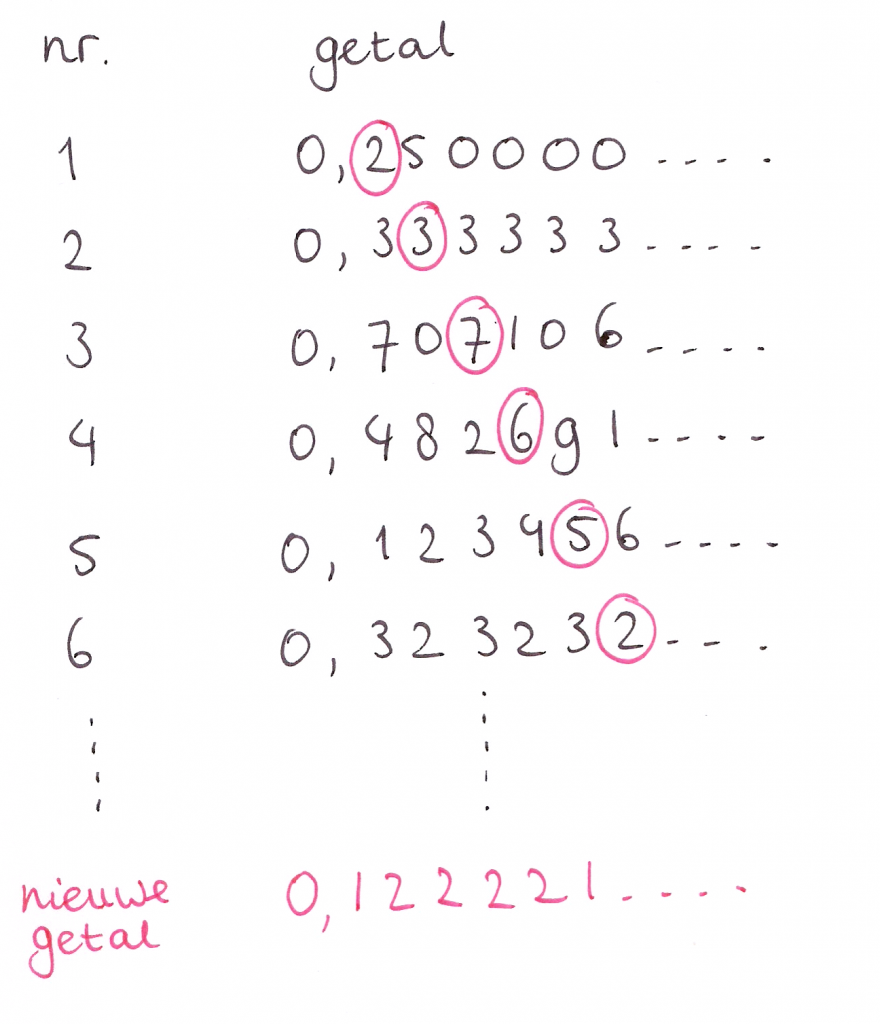 nr. getal
1 0,250000 ....
2 0,333333 ....
3 0,707106 ....
4 0,482691 ....
5 0,123456 ....
6 0,323232 ...
nieuwe 0,122221 ....
getal